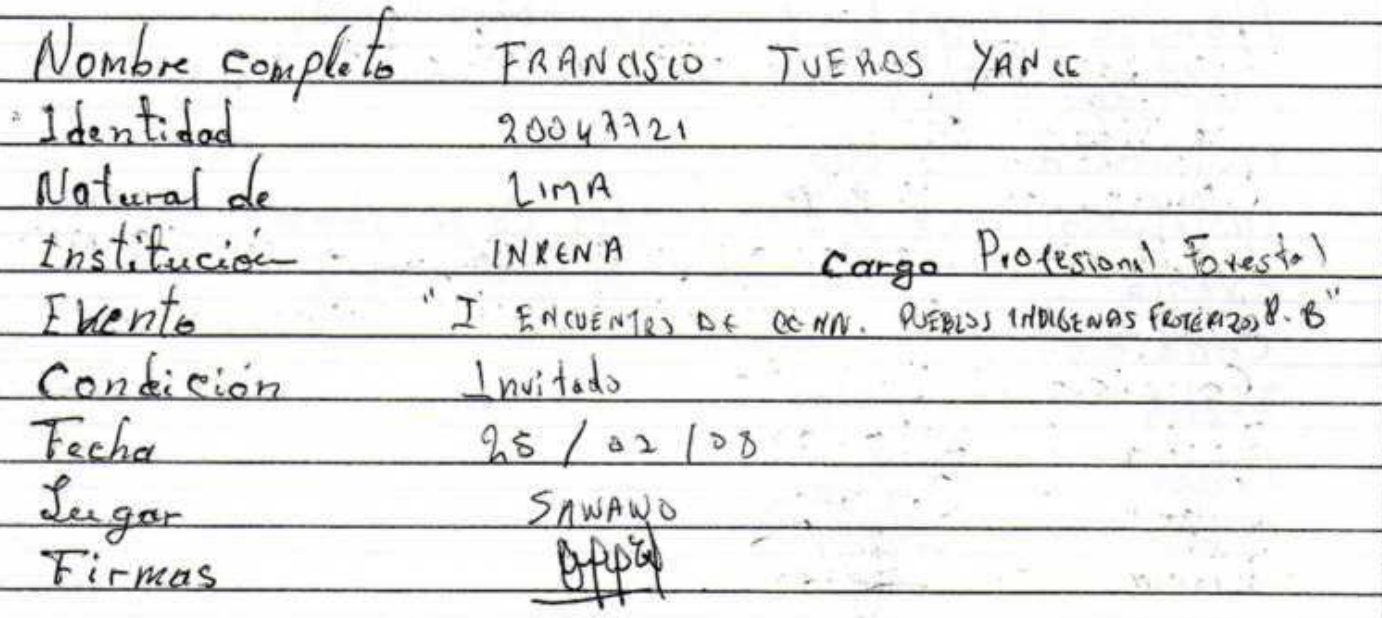 Nombre completo FRANCISCO TUEROS YANCE
Identidad 20047721
Natural de LIMA
Institución INRENA cargo Profesional Forestal
Evento "I ENCUENTRO DE CC NN. PUEBLOS INDIGENAS FROTERIZOS P-B"
Condición Invitado
Fecha 25 / 02 / 08
Lugar SAWAWO
Firmas